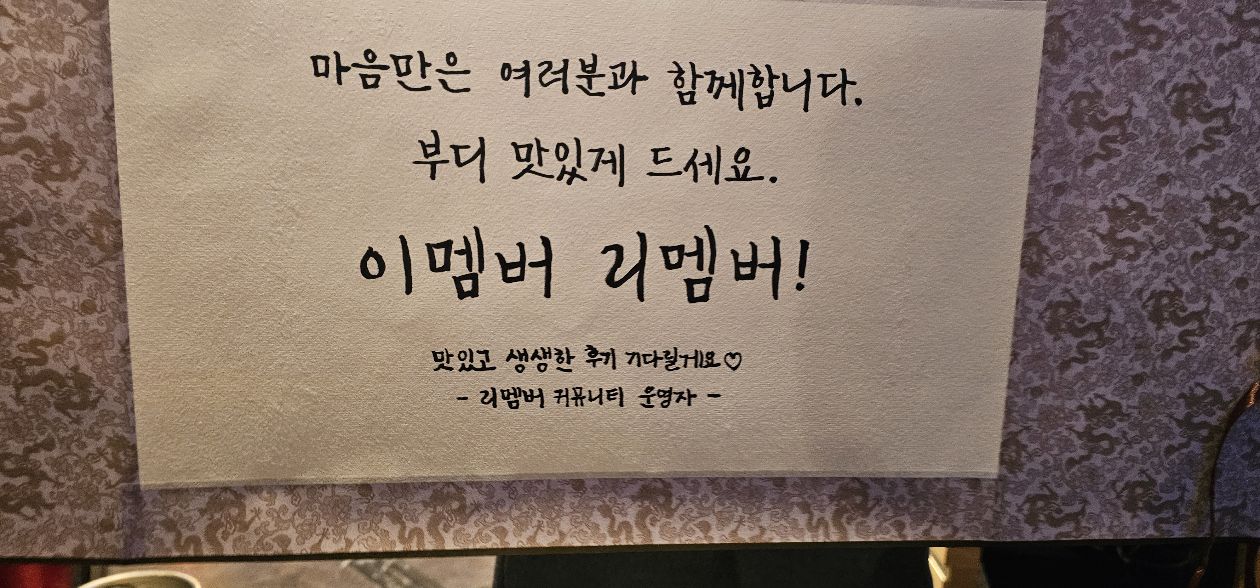 마음만은 여러분과 함께합니다.
부디 맛있게 드세요.
이멤버 리멤버!
맛있고 생생한 후기 기다릴게요♡
- 리멤버 커뮤니티 운영자 -